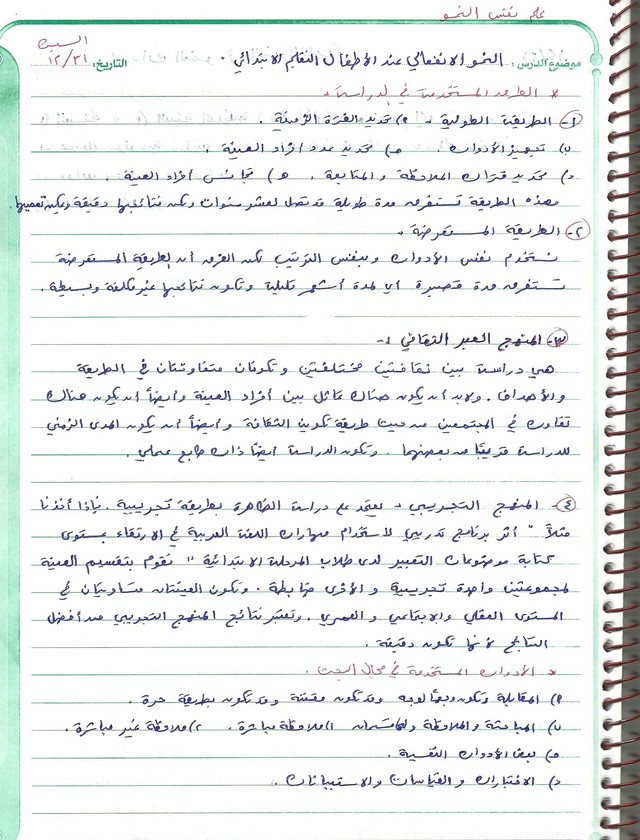 علم نفس النمو
السبت
موضوع الدرس: النمو الانفعالي عند الأطفال التعليم الابتدائي . التاريخ: ١٢/٣١
* الطرق المستخدمة في الدراسة :
١- الطريقة الطولية : أ) تحديد الفترة الزمنية .
ب) تجهيز الأدوات . ج) تحديد عدد أفراد العينة .
د) تحديد فترات الملاحظة والمتابعة . هـ) تجانس أفراد العينة .
وهذه الطريقة تستغرق مدة طويلة قد تصل لعشر سنوات ولكن نتائجها دقيقة ويمكن تعميمها .
٢- الطريقة المستعرضة :
تستخدم نفس الأدوات وبنفس الترتيب لكن الفرق أن الطريقة المستعرضة
تستغرق مدة قصيرة أي لمدة أشهر قليلة وتكون نتائجها غير مكلفة وبسيطة .
٣- المنهج العبر الثقافي :-
هي دراسة بين ثقافتين مختلفتين وتكونان متفاوتتان في الطريقة
والأهداف . ولابد أن يكون هناك تماثل بين أفراد العينة وأيضاً أن يكون هناك
تفاوت في المجتمعين من حيث طريقة تكوين الثقافة وأيضاً أن يكون المدى الزمني
للدراسة قريباً من بعضهما . وتكون الدراسة أيضاً ذات طابع عملي .
٤- المنهج التجريبي : يعتمد على دراسة الظاهرة بطريقة تجريبية . فإذا أخذنا
مثلاً " أثر برنامج تدريبي لاستخدام مهارات اللغة العربية في الارتقاء بمستوى
كتابة موضوعات التعبير لدى طلاب المرحلة الابتدائية " نقوم بتقسيم العينة
لمجموعتين واحدة تجريبية والأخرى ضابطة . وتكون العينتان متساويتان في
المستوى العقلي والاجتماعي والعمري . وتعتبر نتائج المنهج التجريبي من أفضل
النتائج لأنها تكون دقيقة .
* الأدوات المستخدمة في مجال البحث .
أ) المقابلة وتكون وجهاً لوجه وقد تكون مقننة وقد تكون بطريقة حرة .
ب) المباحثة والملاحظة ولها قسمان ١) ملاحظة مباشرة . ٢) ملاحظة غير مباشرة .
ج) بعض الأدوات النفسية .
د) الاختبارات والقياسات والاستبيانات .